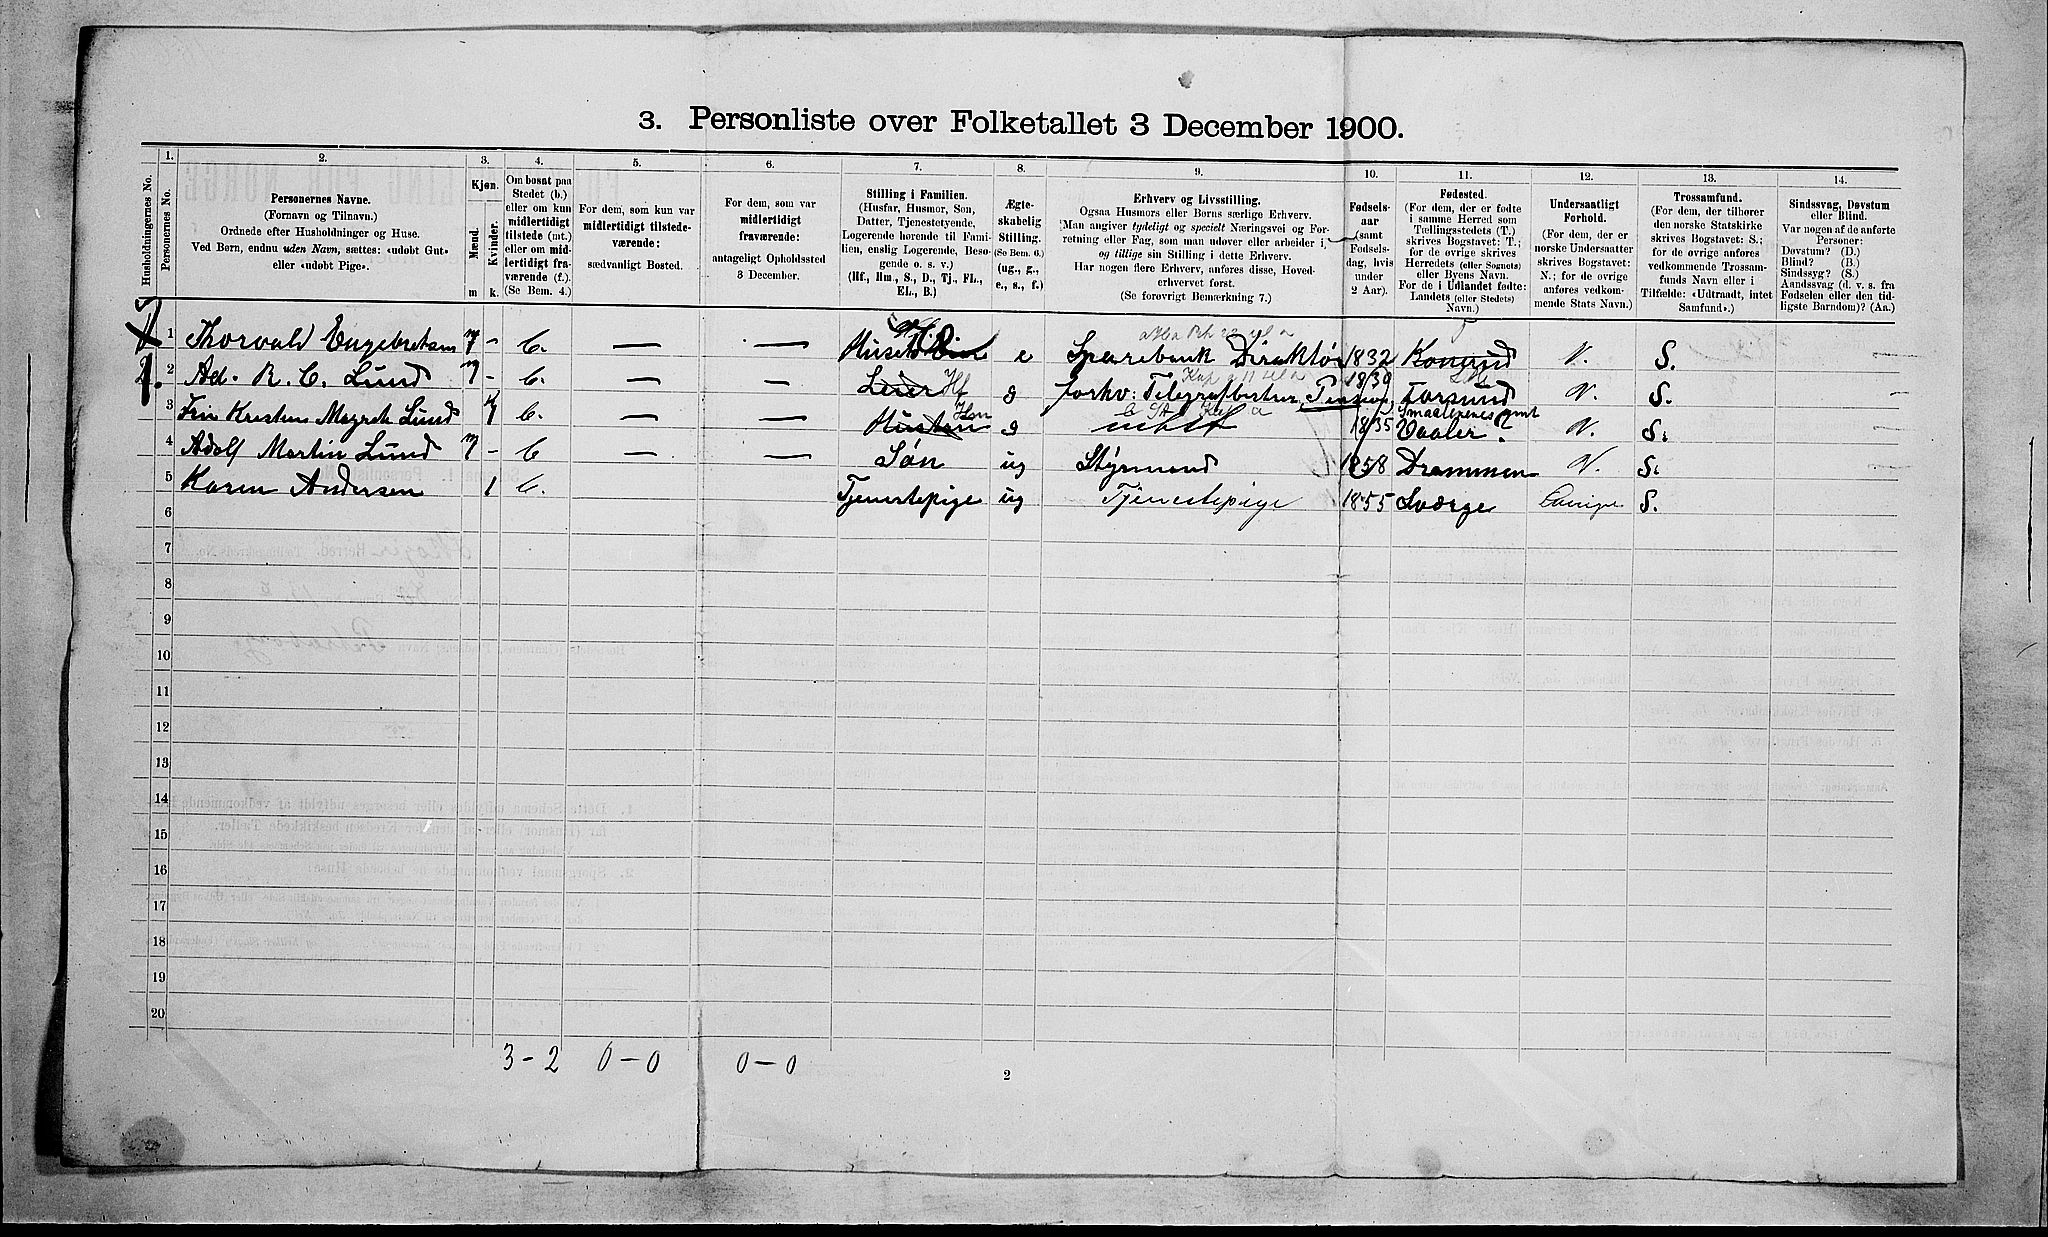 3. Personliste over Folketallet 3 December 1900.
1. 2. 3. 4. 5. 6. 7. 8. 9. 10. 11. 12. 13. 14.
Husholdningernes No.
Personernes No.
Personernes Navne.
(Fornavn og Tilnavn.)
Ordnede efter Husholdninger og Huse.
Ved Børn, endnu uden Navn, sættes: «udøbt Gut»
eller «udøbt Pige».
Kjøn.
Mænd.
Kvinder.
m k.
Om bosat paa
Stedet (b.)
eller om kun
midlertidigt
tilstede (mt.)
eller om mid-
lertidigt fra-
værende (f.).
(Se Bem. 4.)
For dem, som kun var
midlertidigt tilstede-
værende:
sædvanligt Bosted.
For dem, som var
midlertidigt
fraværende:
antageligt Opholdssted
3 December.
Stilling i Familien.
(Husfar, Husmor, Søn,
Datter, Tjenestetyende,
Logerende hørende til Fami-
lien, enslig Logerende, Besø-
gende o. s. v.)
(Hf., Hm., S., D., Tj., FL.,
EL., B.)
Ægte-
skabelig
Stilling.
(So Bem. 6.)
(ug., g.,
e., s., f.)
Erhverv og Livsstilling.
Ogsaa Husmors eller Børns særlige Erhverv.
(Man angiver tydeligt og specielt Næringsvei og For-
retning eller Fag, som man udøver eller arbeider i,
og tillige sin Stilling i dette Erhverv.
Har nogen flere Erhverv, anføres disse, Hoved-
erhvervet først.
(Se forøvrigt Bemærkning 7.)
Fødsels-
aar
(samt
Fødsels-
dag, hvis
under
2 Aar).
Fødested.
(For dem, der er fødte
i samme Herred som
Tællingsstedets (T.)
skrives Bogstavet: T.;
for de øvrige skrives
Herredets (eller Sognets)
eller Byens Navn.
For de i Udlandet fødte:
Landets (eller Stedets)
Navn.)
Undersaatligt
Forhold.
(For dem, der er
norske Undersaatter
skrives Bogstavet:
N.; for de øvrige
anføres vedkom-
mende Stats Navn.)
Trossamfund.
(For dem, der tilhører
den norske Statskirke
skrives Bogstavet: S.;
for de øvrige anføres
vedkommende Trossam-
funds Navn eller i
Tilfælde: «Udtraadt, intet
Samfund».)
Sindssvag, Døvstum
eller Blind.
Var nogen af de anførte
Personer:
Døvstum? (D.)
Blind? (B.)
Sindssyg? (S.)
Aandssvag (d. v. s. fra
Fødselen eller den tid-
ligste Barndom)? (Aa.)
1 Thorvald Engebretsen b. — — e Sparebank Direktør 1832 N. S.
2 Ad. R. C. Lund b. — — Hf g forhv. Telegrafbestyrer Pension 1830 Farsund N. S.
3 Kirsten Lund b. — — Hm g 1835 Smaalenenes Amt Vaaler? N. S.
4 Adolf Martin Lund b — — Søn ug Styrmand 1858 Drammen N. S.
5 Karen Andersen 1 b. Tjenestepige ug Tjenestepige 1855 Sværge Sverige S.
6
7
8
9
10
11
12
13
14
15
16
17
18
19
20
3 - 2 0 - 0 0 - 0
2